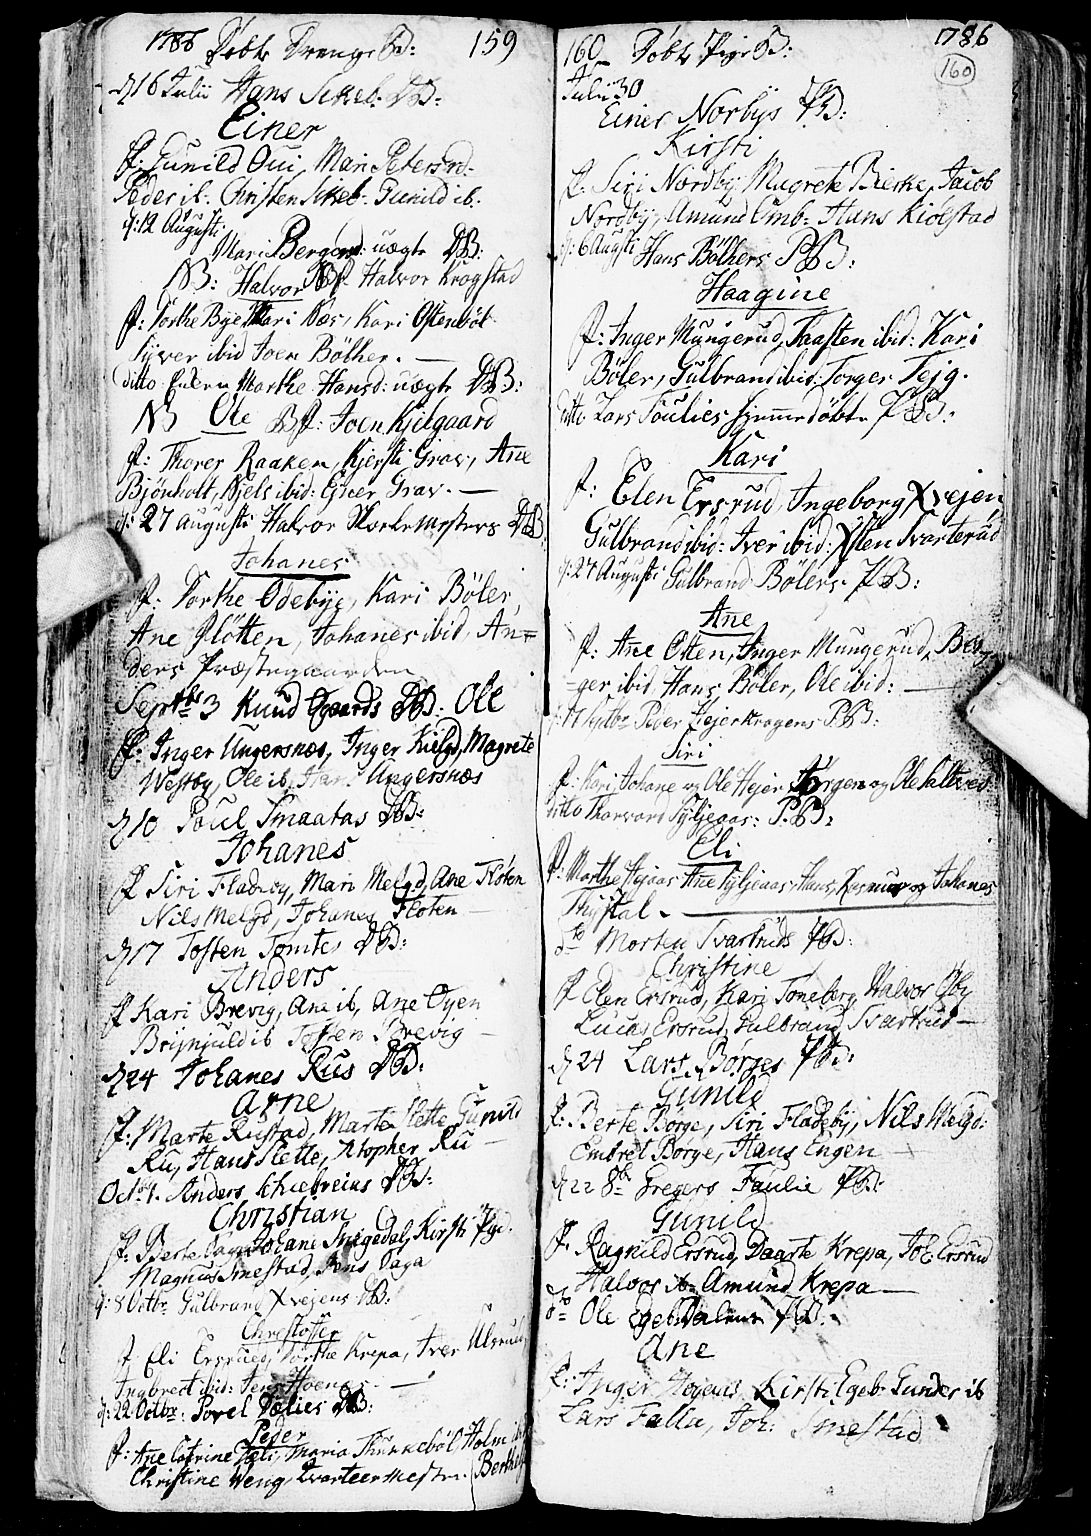 1786 Døbte Drenge B: 159
d 16 Julii Hans Sikeb. DB:
Einer
f: Gunild Oui, Mari Petersrd.
Peder ib: Christen Sikeb. Gunild ib.
d: 12 Augusti
Mari Bergerrd: uægte DB:
NB: Halvor Bf. Halvor Krogstad
f: Dorthe Bye, Mari Næs, Kari Ostenbøl
Syver ibid Joen Bølher.
ditto Marthe Hansd: uægte DB:
NB Ole Bf: Joen Kjelgaard
f: Thores Raaken, Kjersti Grav, Ane
Bjönholt, Niels ibid: Ejner Grav.
d: 27 Augusti Halvor DB
Johanes
f: Dorthe Odebye, Kari Bøler,
Ane Pløtten, Johanes ibid, An=
ders Præstegaarden
Septbr 3 Knud DB: Ole
f: Inger Ungersnæs, Inger Kielgd, Magrete
Westby, Ole ib, Hans Angersnæs
d 10 Poul Smaatas DB:
Johanes
f Siri Fladeby, Mari Melgd, Ane Fløten
Nils Melgd, Johanes Fløten
d 17 Tosten Tomte DB:
Anders
f Kari Brevig, Ane ib, Ane Øyen
Brijnjuld ib Tosten Brevig
d 24 Johanes Rus DB:
Arne
f: Marte Rustad, Marte Slette, Gunild
Ru, Hans Slette, Xtopher Ru
Octb 1. Anders Schiebreius DB:
Christian
f: Berte Johane Snigedal, Kirsti Pgd.
Magnus Smestad, Jens Daga
d: 8 Octbr Gulbrand Xvejens DB:
Christoffer
f Eli Ersrued, Dorthe Krepa, Iver Ulsrud
Ingbrect ibid: Jens Hoene
d: 22 Octbr: Povel DB:
Peder
f: Ane Catrine Maria Thünnebøl Holm
Christine Weng, Qvarteermester
160 Døbte Pige B: 1786
160
Julii 30
Einer Norbys PB:
Kirsti
f: Siri Nordby Magrete Bierke, Jacob
Nordby, Amund Emb: Hans Kiølstad
d: 6 Augsti Hans Bølhers PB:
Haagine
f: Inger Mungerud, Taasten ibid: Kari
Bøler, Gulbrand ibid: Torger Tejg.
ditto Lars Soulies hjemmedøbte PB:
Kari
f: Elen Ersrud, Ingeborg Xvejen,
Gulbrand ibid: Iver ibid: Xsten Svarterud
d: 27 Augusti Gulbrand Bølers PB:
Ane
f: Ane Østen, Inger Mungerud, Ber=
ger ibid, Hans Bøler, Ole ibid:
d: 17 Septbr Peder Hejerkragens PB:
Siri
f: Kari, Johane og Ole Hejer Jørgen og Ole Saltved
ditto Thorvard Syljeaas: PB:
Eli
f: Marthe Hejaas Ane Syljeaas, Hans, Rasmus og Johanes
Thystal.
dto Morten Svartruds PB:
Christine
f Elen Ersrud, Kari Toneberg, Halvor Oby
Lucas Ersrud, Gulbrand Svartrud
d 24 Lars Børges PB:
Gunild
f: Berte Børge, Siri Fladeby, Nils Melgd:
Embret Børge, Hans Engen
d 22 8br Gregers Faulie PB:
Gunild
f: Ragnild Ersrud, Daarte Krepa, Joh: Ersrud
Halvor ib Amund Krepa
dto Ole PB:
Ane
f: Inger Hojens Kirsti Egeb. Gunder ib
Lars Falla, Joh: Smestad